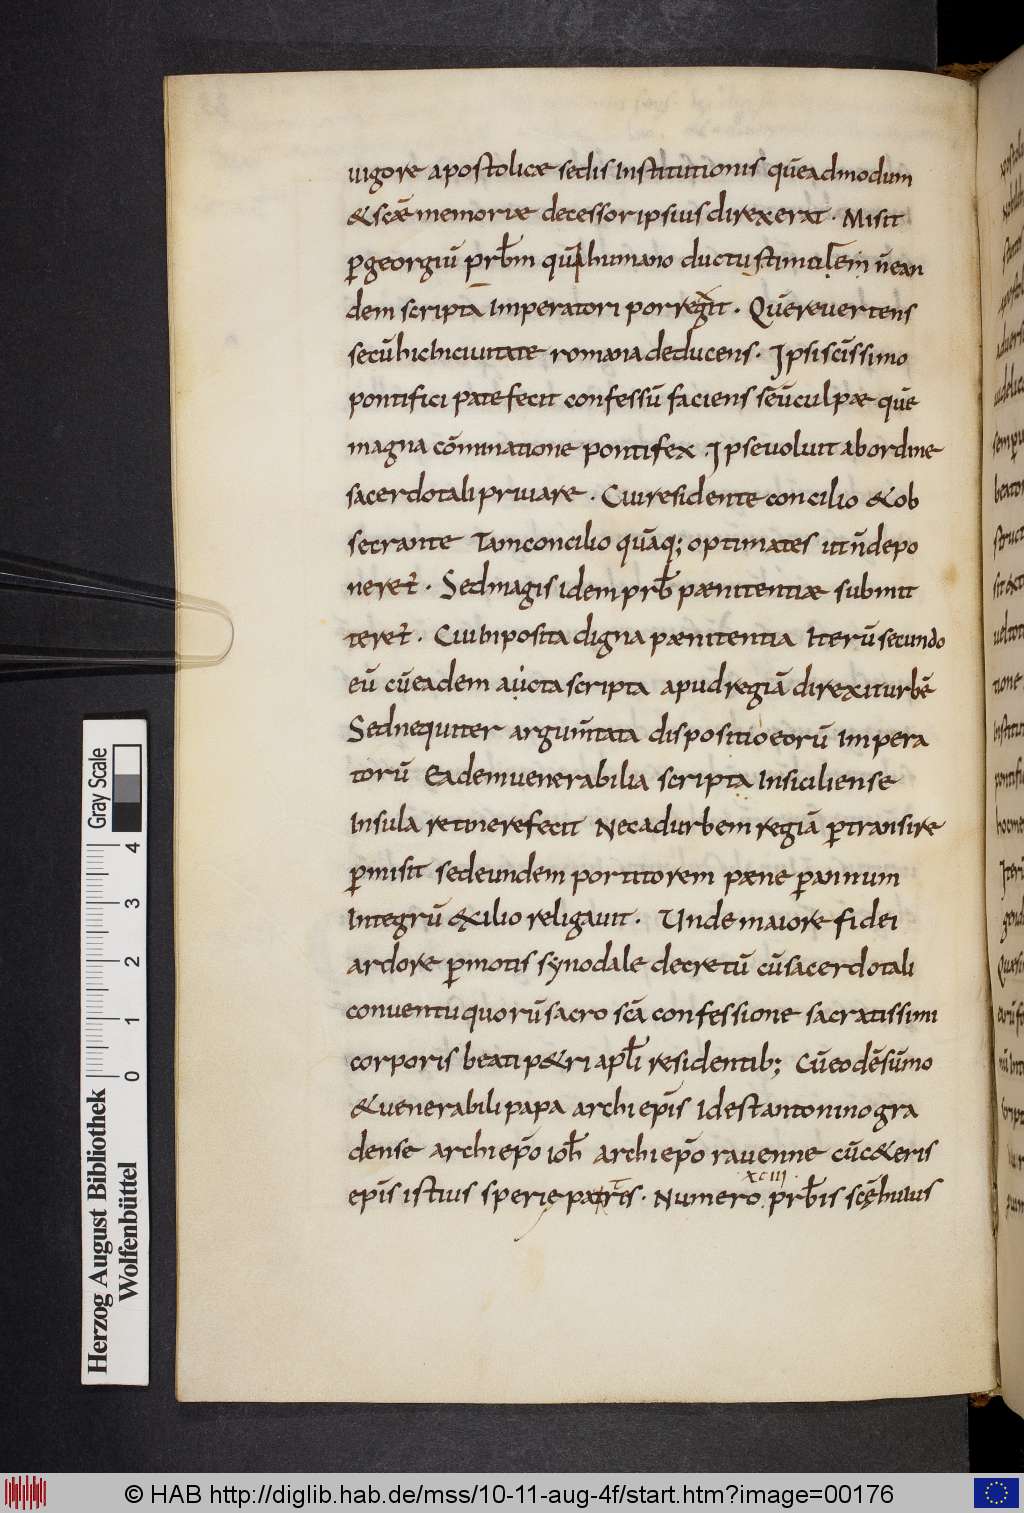 uigore apostolicæ sedis Institutionis quēadmodum
&scāe memoriæ decessor ipsius direxerat · Misit
ꝑgeorgiū prbm̄ qui humano ductus timore n̄ean
dem scripta Imperatori porregit · Quēreuertens
secū hic hic iuitate romana deducens · Ipsi scīssimo
pontifici patefecit confessū faciens sēū culpæ quē
magna cōminatione pontifex · Ipse uoluit ab ordine
sacerdotali priuare · Cui residente concilio & ob
secrante Tam concilio quāq; optimates ut n̄ depo
neret᷑ · Sed magis idem prb̄ pænitentiæ submit
teret᷑ · Cui Inposita digna pænitentia Iterū secundo
eū cū eadem aucta scripta apud regiā direxit urbē
Sed nequiter argum̄tata dispositio eorū Impera
torū Eadem uenerabilia scripta In siciliense
Insula retinere fecit Nec ad urbem regiā ꝑtransire
ꝑmisit sed eundem portitorem pæne ꝑ annum
Integrū &xilio religauit · Unde maiore fidei
ardore ꝑmotis synodale decretū cū sacerdotali
conuentu quorū sacro scā confessione sacratissimi
corporis beati p&ri aplī residentib; Cū eodē sūmo
& uenerabili papa archi epīs Id est antonino gra
dense archi epō ioh̄ archi epō rauenne cūc&eris
epīs istius sperie partis · Numero · xciii · prb̄is scē huius
Gray Scale
0 1 2 3 4
Herzog August Bibliothek
Wolfenbüttel
© HAB http://diglib.hab.de/mss/10-11-aug-4f/start.htm?image=00176